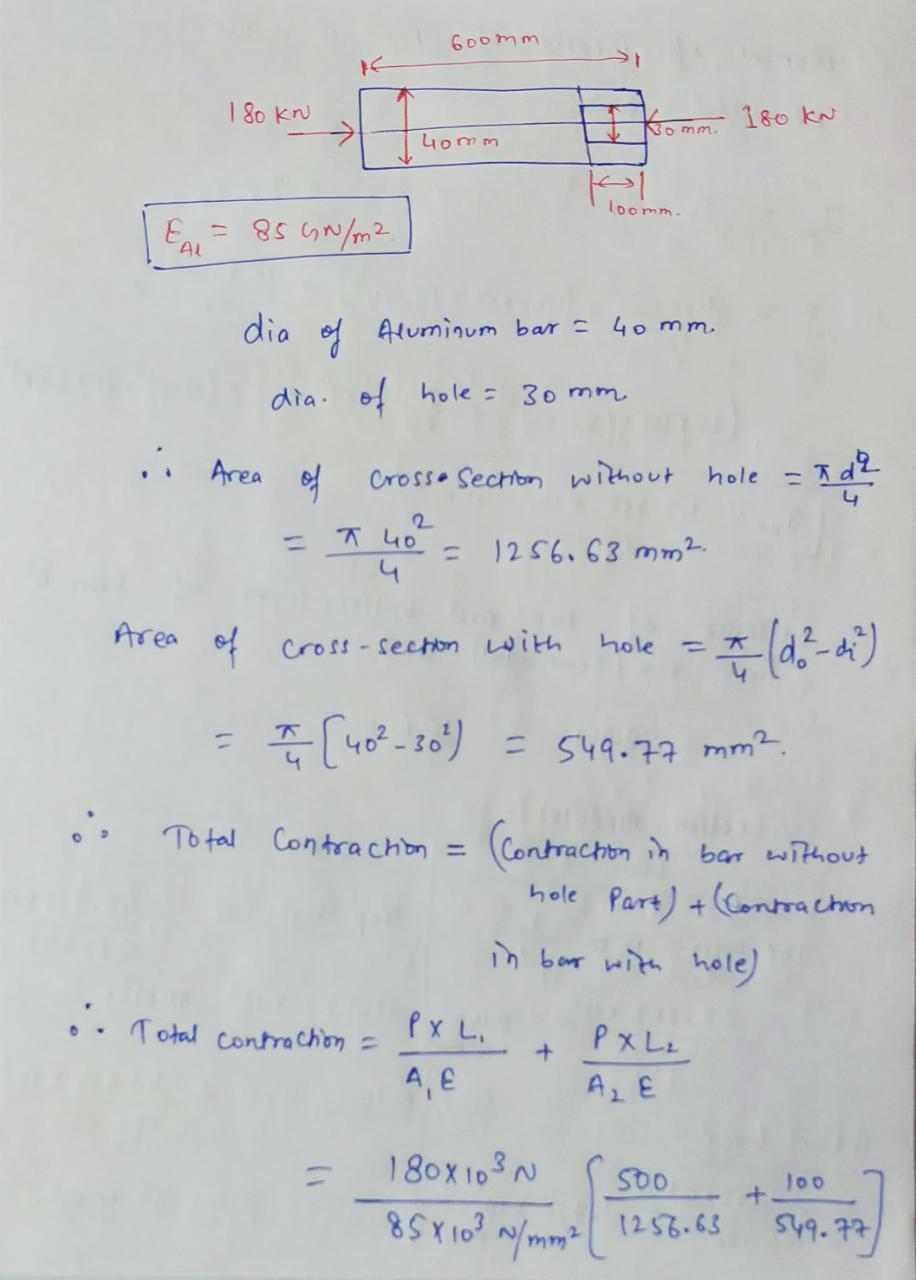 600mm
180 KN
40mm
30 mm.
180 KN
100mm.
E_Al = 85 GN/m²
dia of Aluminum bar = 40 mm.
dia. of hole = 30 mm
∴ Area of cross-section without hole = πd²/4
= π 40²/4 = 1256.63 mm².
Area of cross-section with hole = π/4 (d₀² - dᵢ²)
= π/4 [40² - 30²) = 549.77 mm².
∴ Total Contraction = (Contraction in bar without
hole Part) + (Contraction
in bar with hole)
∴ Total contraction = P x L₁/A₁E + P x L₂/A₂E
= 180x10³ N/85x10³ N/mm² [500/1256.63 + 100/549.77]